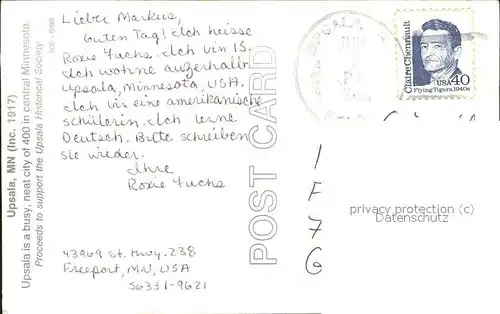 Upsala, MN (Inc. 1917)
Upsala is a busy, neat city of 400 in central Minnesota.
Proceeds to support the Upsala Historical Society
Lieber Markus,
Guten Tag! Ich heisse
Roxie Fuchs. Ich bin 15.
Ich wohne auzerhalb
Upsala, Minnesota, USA.
Ich bin eine amerikanische
schülerin. Ich lerne
Deutsch. Bitte schreiben
sie wieder.
Ihre
Roxie Fuchs
43969 St. Hwy. 238
Freeport, MN, USA
56331-9621
POST CARD
UPSALA
Claire Chennault
USA 40
Flying Tigers, 1940s
1
F
7
6
privacy protection (copyright)
Datenschutz